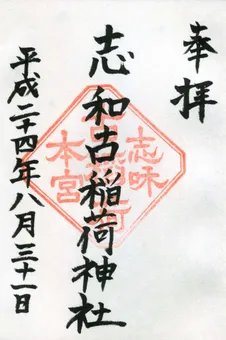 奉拝
志和古稲荷神社
平成二十四年八月三十一日
志味
本宮